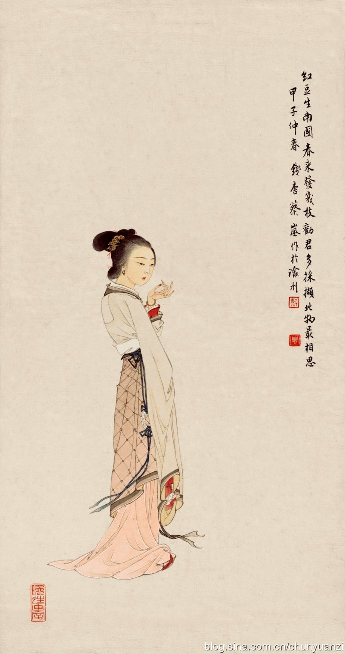 紅豆生南國春來發幾枝勸君多採擷此物最相思
甲子仲春 錢唐蔡嵐作於
blog.sina.com.cn/chunyuanzi